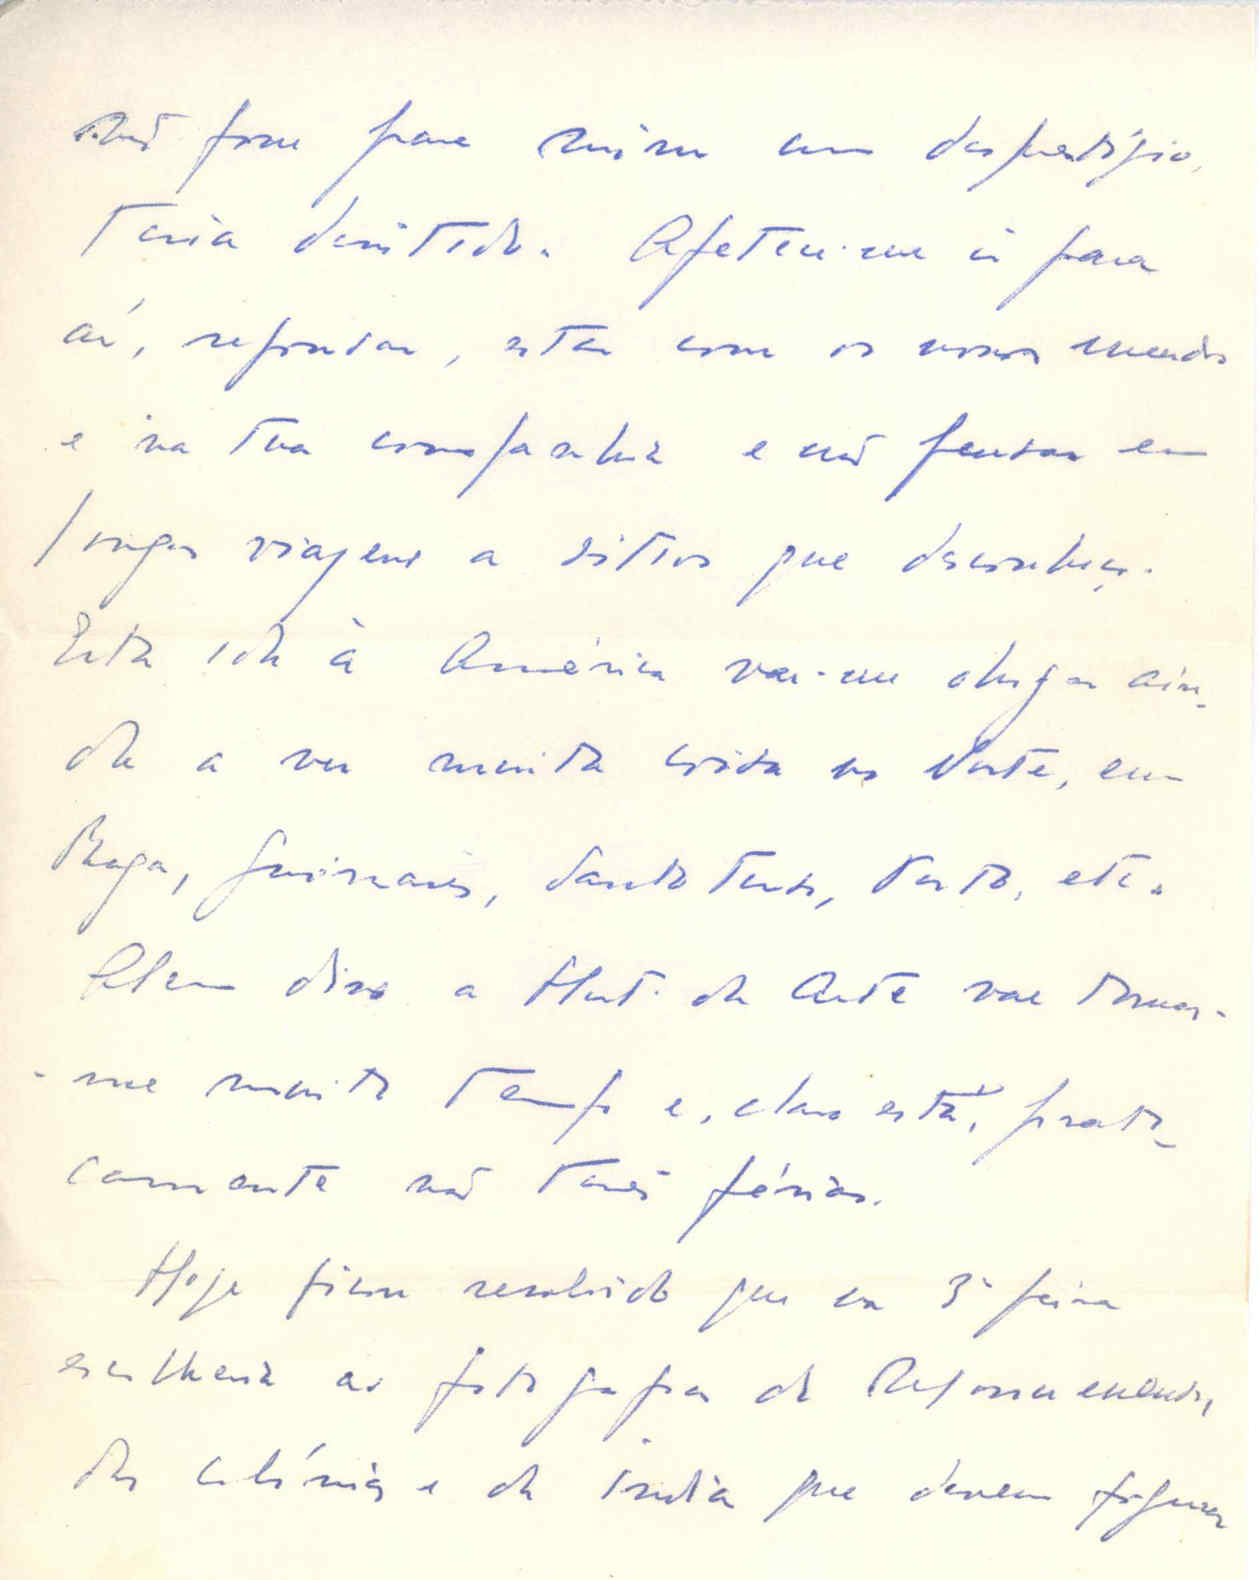 não fosse para mim um desprestígio,
teria desistido. Apetecia-me ir para
aí, repousar, estar com os nossos meudos
e na tua companhia e não pensar em
longas viagens a sitios que desconheço.
Esta ida à América vai-me obrigar ain-
da a ver muita coisa no Norte, em
Braga, Guimarães, Santo Tirso, Porto, etc.
Alem disso a Hist. da Arte vae tomar-
-me muito tempo e, claro está, prati-
camente não terei férias.
Hoje ficou resolvido que na 3ª feira
escolheria as fotografias de
das colónias e da India que devem figurar